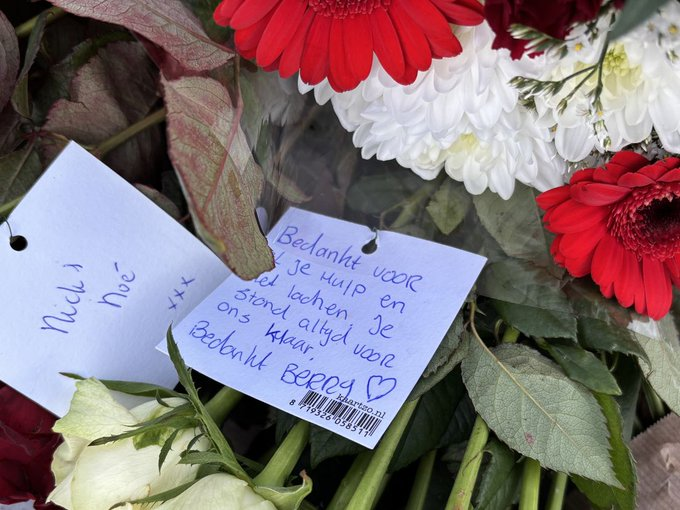 Nick &
Noé
xxx
Bedankt voor
al je Hulp en
het lachen je
stond altyd voor
ons klaar.
Bedankt Berry ♡
kaartzo.nl
8 719326 058511